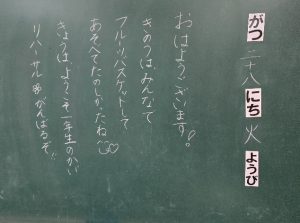 がつ 二十八 にち 火 ようび
おはようございます!
きのうは、みんなで
フルーツバスケットして
あそべてたのしかったね
きょうは、ようこそ一年生のかい
リハーサル がんばるぞ!